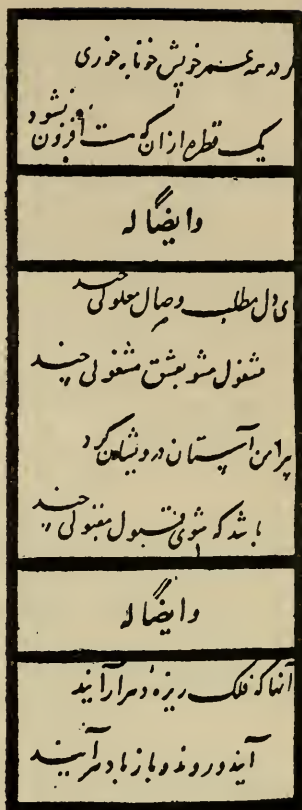 در همه عمر خویش خونابه خوری
یک قطره ازان که هست افزون نشود
وایضاً له
ای دل مطلب وصال معلولی چند
مشغول مشو بعشق مشغولی چند
پیرامن آستان درویشان گرد
باشد که شوی قبول مقبولی چند
وایضاً له
آنها که فلک ریزهٔ دهر آرایند
آیند و روند و باز با دهر آیند